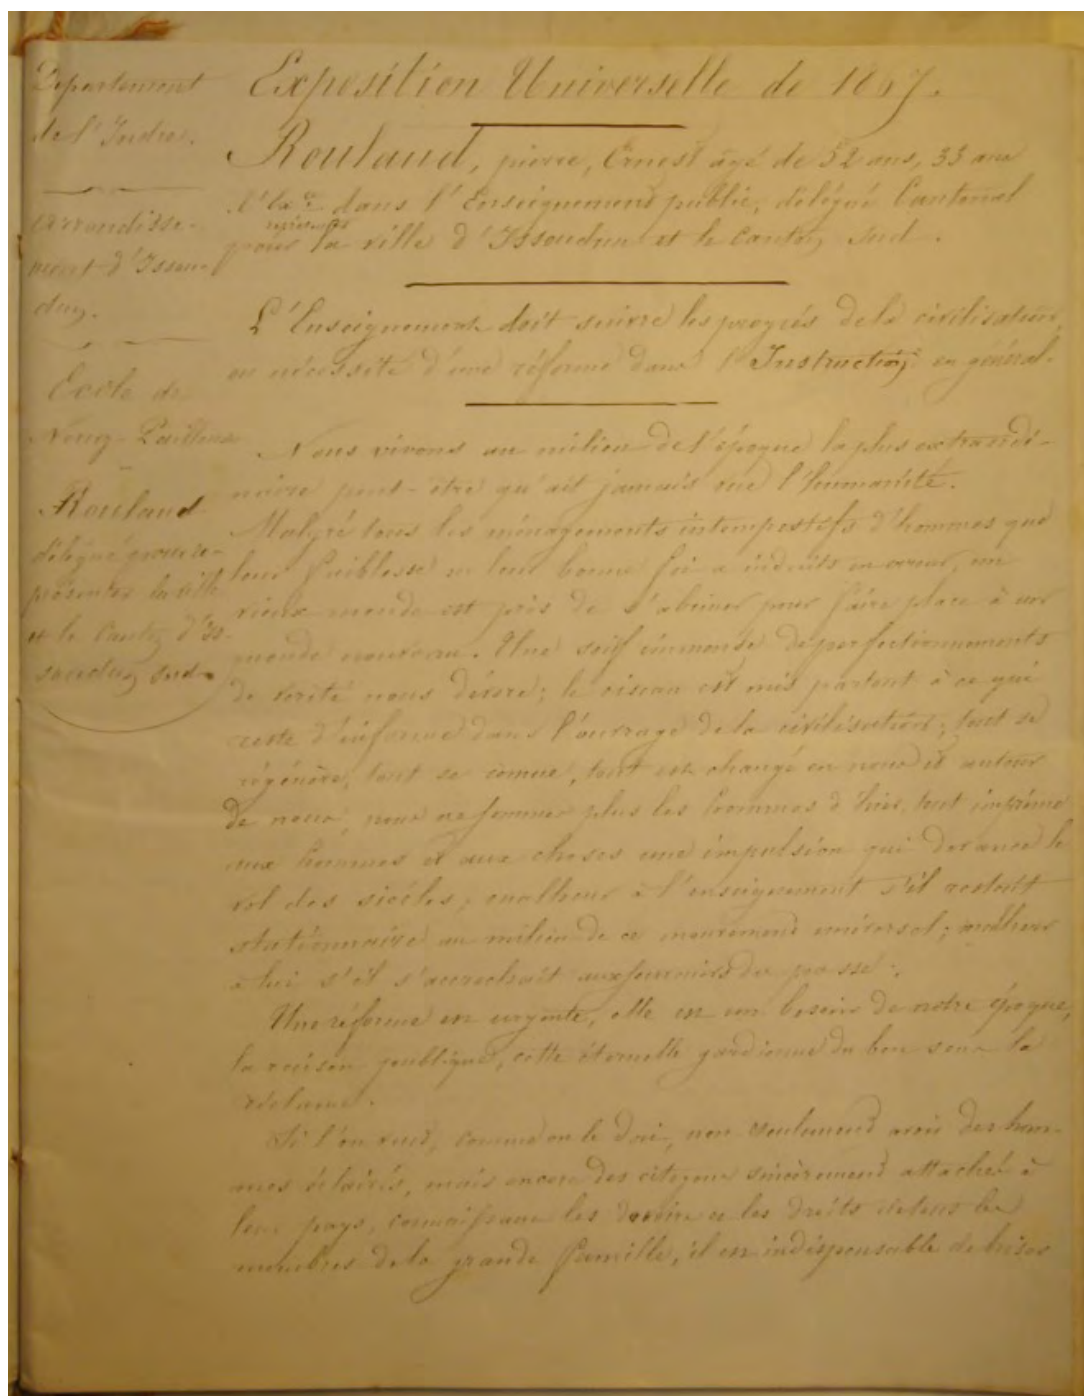 Departement
de l'Indre.
arrondisse-
ment d'Issou-
dun.
Ecole de
Neung-
Rouland
délégué pour re-
présenter la ville
et le Canton d'Is-
soudun sud
Exposition Universelle de 1867.
Rouland, pierre, Ernest âgé de 52 ans, 33 ans
dans l'Enseignement public, délégué Cantonal
représenter
pour la ville d'Issoudun et le Canton sud.
L'Enseignement doit suivre les progrès de la civilisation
ou nécessité d'une réforme dans l'Instruction en général.
Nous vivons au milieu de l'époque la plus extraordi-
naire peut-être qu'ait jamais vue l'humanité.
Malgré tous les ménagements intempestifs d'hommes que
leur faiblesse ou leur bonne foi a induits en erreur, un
vieux monde est près de s'abîmer pour faire place à un
monde nouveau. Une soif immense de perfectionnements
de vérité nous dévore; le ciseau est mis partout à ce qui
reste d'informe dans l'ouvrage de la civilisation; tout se
régénère, tout se remue, tout est changé en nous et autour
de nous, nous ne sommes plus les hommes d'hier, tout imprime
aux hommes et aux choses une impulsion qui devance le
vol des siècles; malheur à l'enseignement s'il restait
stationnaire au milieu de ce mouvement universel; malheur
à lui s'il s'accrochait aux souvenirs du passé.
Une réforme est urgente, elle est un besoin de notre époque,
la raison publique, cette éternelle gardienne du bon sens la
réclame.
Si l'on veut, comme on le doit, non seulement avoir des hom-
mes éclairés, mais encore des citoyens sincèrement attachés à
leur pays, connaissant les devoirs et les droits de tous les
membres de la grande famille, il est indispensable de briser